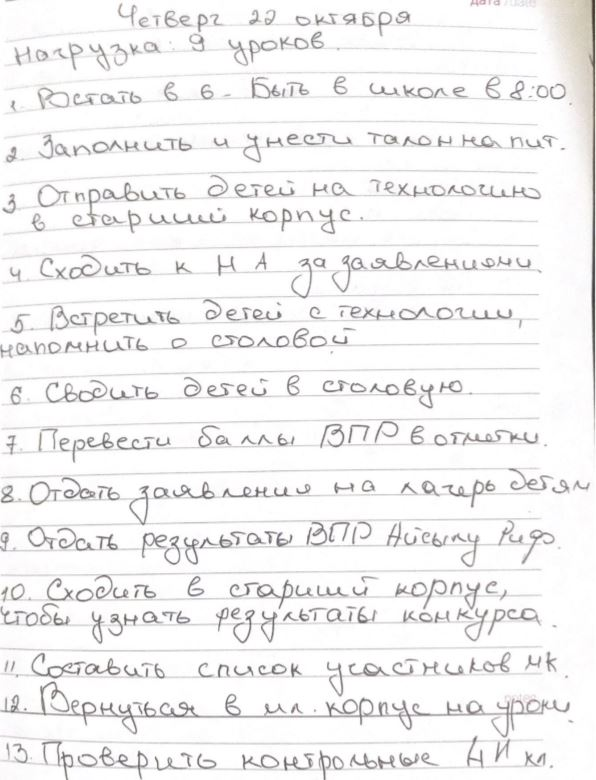 Дата/Date
Четверг 22 октября
Нагрузка: 9 уроков.
1. Встать в 6 - Быть в школе в 8:00.
2. Заполнить и унести талон на пит.
3 Отправить детей на технологию
в старший корпус.
4. Сходить к Н А за заявлениями.
5. Встретить детей с технологии,
напомнить о столовой
6. Сводить детей в столовую.
7. Перевести баллы ВПР в отметки.
8. Отдать заявления на лагерь детям
9. Отдать результаты ВПР Айсылу Риф.
10. Сходить в старший корпус,
чтобы узнать результаты конкурса.
11. Составить список участников мк.
12. Вернуться в мл. корпус на уроки.
13. Проверить контрольные 4 И кл.